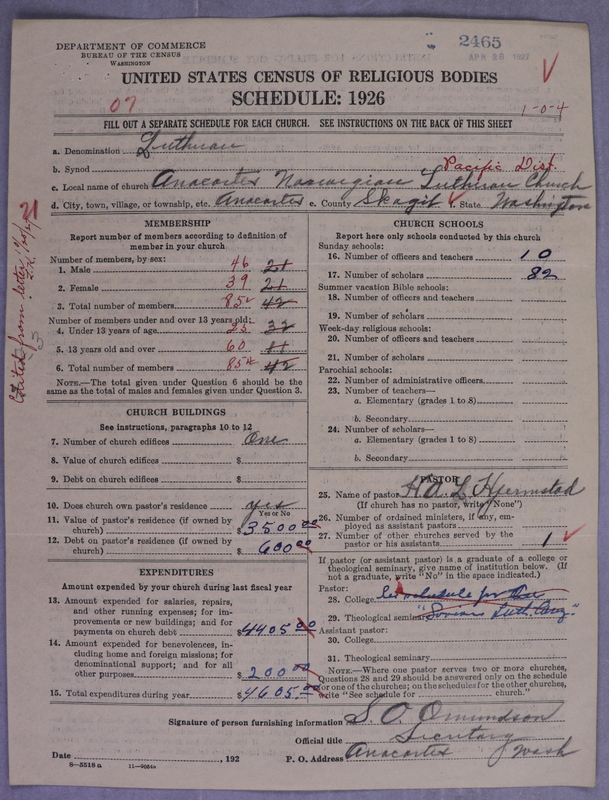 DEPARTMENT OF COMMERCE
BUREAU OF THE CENSUS
WASHINGTON
2465
APR 28 1927
UNITED STATES CENSUS OF RELIGIOUS BODIES
SCHEDULE: 1926
07
1-0-4
FILL OUT A SEPARATE SCHEDULE FOR EACH CHURCH. SEE INSTRUCTIONS ON THE BACK OF THIS SHEET
a. Denomination Lutheran
b. Synod Pacific Dist.
c. Local name of church Anacortes Norwegian Lutheran Church
d. City, town, village, or township, etc. Anacortes e. County Skagit f. State Washington
MEMBERSHIP
Report number of members according to definition of member in your church
Number of members, by sex:
1. Male 46 21
2. Female 39 21
3. Total number of members 85 42
Number of members under and over 13 years old:
4. Under 13 years of age 25 32
5. 13 years old and over 60 11
6. Total number of members 85 42
NOTE.—The total given under Question 6 should be the same as the total of males and females given under Question 3.
CHURCH BUILDINGS
See instructions, paragraphs 10 to 12
7. Number of church edifices One
8. Value of church edifices $
9. Debt on church edifices $
10. Does church own pastor's residence yes
Yes or No
11. Value of pastor's residence (if owned by church) $3500 00
12. Debt on pastor's residence (if owned by church) $600 00
EXPENDITURES
Amount expended by your church during last fiscal year
13. Amount expended for salaries, repairs, and other running expenses; for improvements or new buildings; and for payments on church debt $4405 00
14. Amount expended for benevolences, including home and foreign missions; for denominational support; and for all other purposes $200 00
15. Total expenditures during year $4605 00
CHURCH SCHOOLS
Report here only schools conducted by this church
Sunday schools:
16. Number of officers and teachers 10
17. Number of scholars 82
Summer vacation Bible schools:
18. Number of officers and teachers
19. Number of scholars
Week-day religious schools:
20. Number of officers and teachers
21. Number of scholars
Parochial schools:
22. Number of administrative officers
23. Number of teachers—
a. Elementary (grades 1 to 8)
b. Secondary
24. Number of scholars—
a. Elementary (grades 1 to 8)
b. Secondary
PASTOR
25. Name of pastor H. A. L. Hjermstad
(If church has no pastor, write "None")
26. Number of ordained ministers, if any, employed as assistant pastors
27. Number of other churches served by the pastor or his assistants 1
If pastor (or assistant pastor) is a graduate of a college or theological seminary, give name of institution below. (If not a graduate, write "No" in the space indicated.)
Pastor:
28. College See schedule for the
29. Theological seminary
Assistant pastor:
30. College
31. Theological seminary
NOTE.—Where one pastor serves two or more churches, Questions 28 and 29 should be answered only on the schedule for one of the churches; on the schedules for the other churches, write "See schedule for church."
Signature of person furnishing information S. O. Omundson
Official title Secretary
Date , 192 P. O. Address Anacortes Wash
8—5518 a 11—9084a